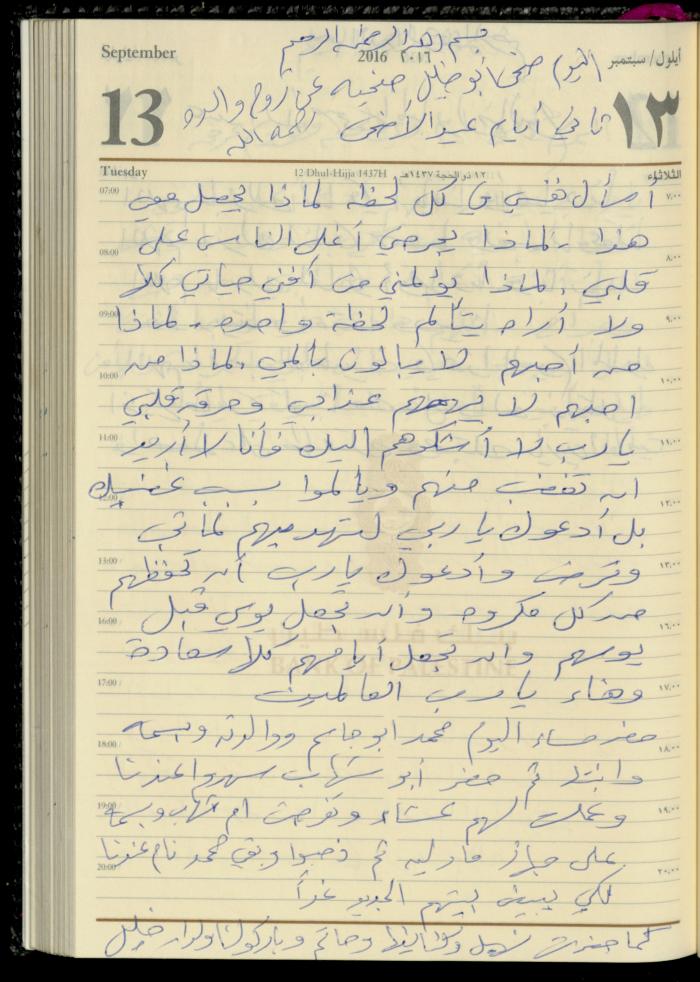 بسم الله الرحمن الرحيم
September
2016 ٢٠١٦
أيلول/ سبتمبر
اليوم ضحى أبو خليل ضحية عن روح والده
13
ثاني أيام عيد الأضحى رحمه الله
١٣
Tuesday
12 Dhul-Hijja 1437H ١٢ ذو الحجة ١٤٣٧هـ
الثلاثاء
07:00 أسأل نفسي في كل لحظة لماذا يحصل معي ٧:٠٠
هذا، لماذا يجرحني أغلى الناس على
08:00 ٨:٠٠
قلبي، لماذا يؤلمني من أفني حياتي كلا
09:00 ولا أراه يتألم لحظة واحده، لماذا ٩:٠٠
من أحبهم لا يبالون بألمي، لماذا من
10:00 ١٠:٠٠
احبهم لا يهمهم عذابي وحرقة قلبي
11:00 يا رب لا أشكوهم اليك فأنا لا أريد ١١:٠٠
ان تغضب منهم ويألموا بسبب غضبك
12:00 ١٢:٠٠
بل أدعوك يا ربي لتهديهم لما تحب
13:00 وترضى وأدعوك يا رب أن تحفظهم ١٣:٠٠
من كل مكروه وان تجعل يومي قبل
16:00 ١٦:٠٠
يومهم وان تجعل أيامهم كلا سعادة
BANK OF PALESTINE
17:00 وهناء يا رب العالمين ١٧:٠٠
حضر مساء اليوم محمد ابو جاسم ووالدته وبسمه
18:00 ١٨:٠٠
وابنتها ثم حضر أبو شهاب سهروا عندنا
19:00 وعملت لهم عشاء وتفرجت ام شهاب وبسمة ١٩:٠٠
على جهاز ثم ذهبوا وبقي محمد نام عندنا
20:00 ٢٠:٠٠
لكي يبيض بيتهم الجديد غداً
كما حضرت وحاتم وباركوا لنا